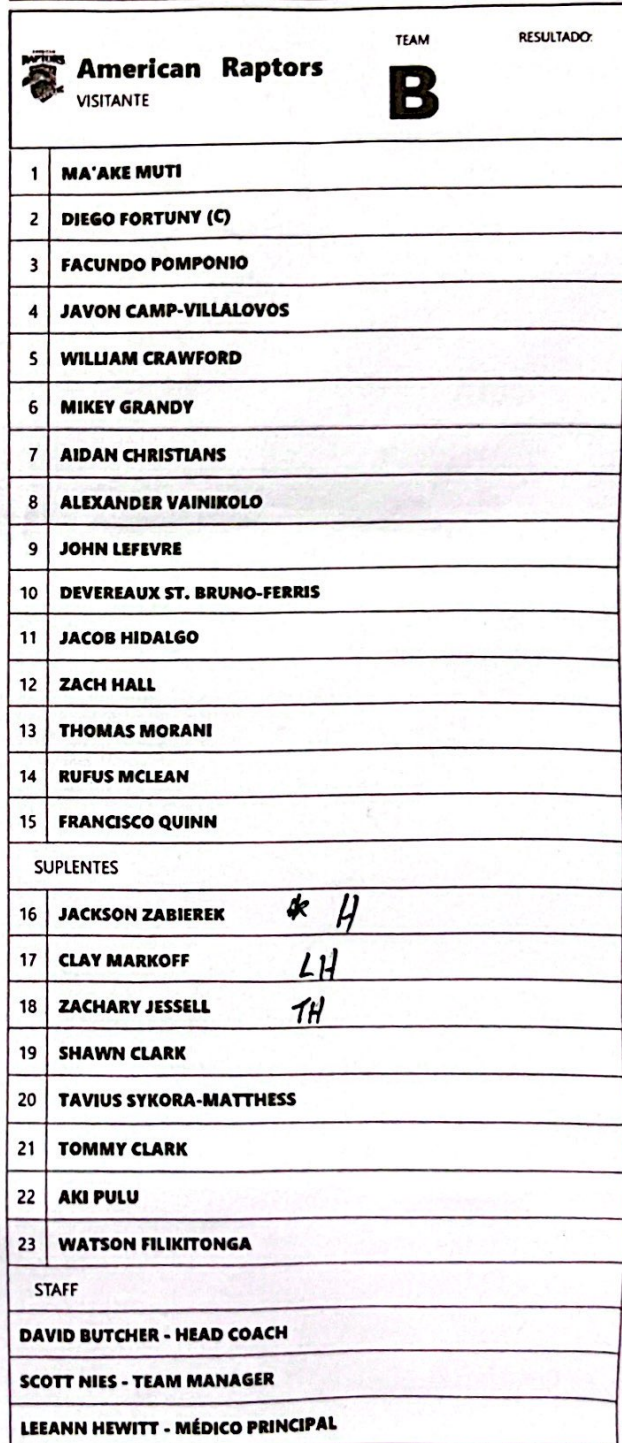 TEAM RESULTADO:
RAPTORS
American Raptors
VISITANTE
B
1 MA'AKE MUTI
2 DIEGO FORTUNY (C)
3 FACUNDO POMPONIO
4 JAVON CAMP-VILLALOVOS
5 WILLIAM CRAWFORD
6 MIKEY GRANDY
7 AIDAN CHRISTIANS
8 ALEXANDER VAINIKOLO
9 JOHN LEFEVRE
10 DEVEREAUX ST. BRUNO-FERRIS
11 JACOB HIDALGO
12 ZACH HALL
13 THOMAS MORANI
14 RUFUS MCLEAN
15 FRANCISCO QUINN
SUPLENTES
16 JACKSON ZABIEREK H
17 CLAY MARKOFF LH
18 ZACHARY JESSELL TH
19 SHAWN CLARK
20 TAVIUS SYKORA-MATTHESS
21 TOMMY CLARK
22 AKI PULU
23 WATSON FILIKITONGA
STAFF
DAVID BUTCHER - HEAD COACH
SCOTT NIES - TEAM MANAGER
LEEANN HEWITT - MÉDICO PRINCIPAL